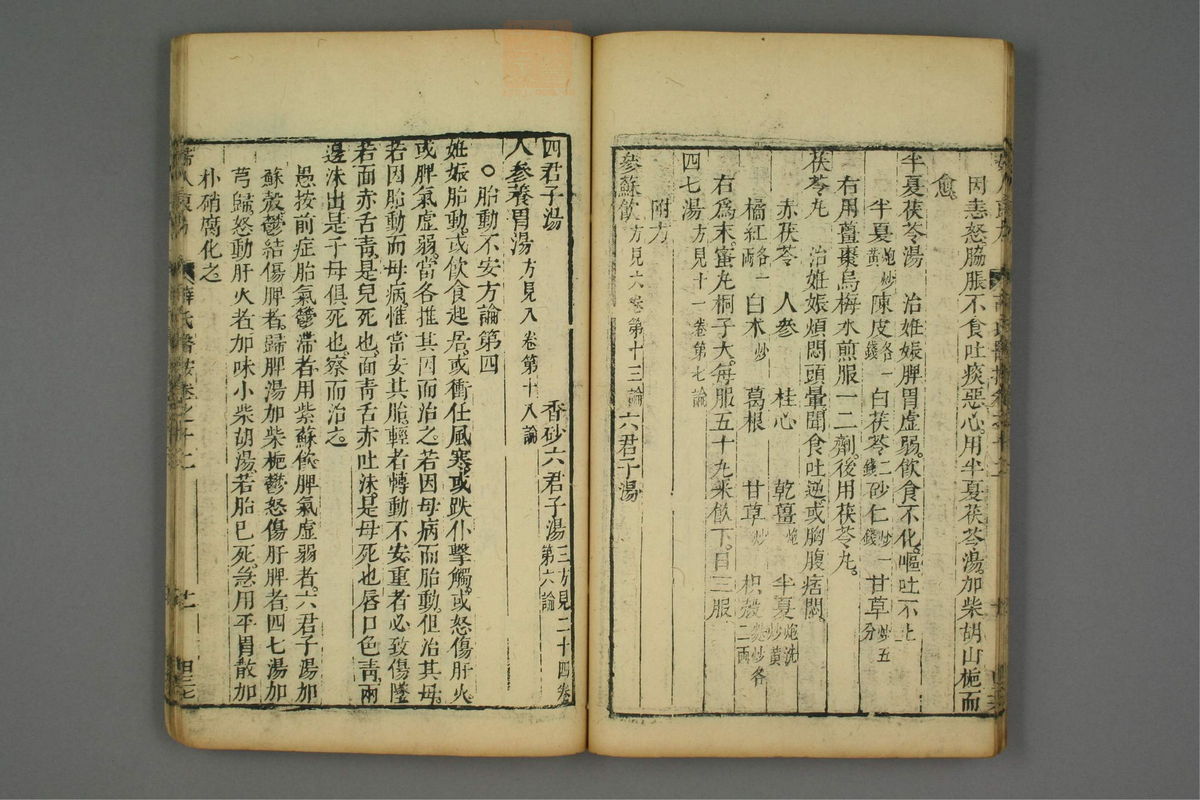 因恚怒脇脹不食吐痰惡心用半夏茯苓湯加柴胡山梔而
愈
半夏茯苓湯 治妊娠脾胃虛弱飲食不化嘔吐不止
半夏炮炒黃 陳皮各一錢 白茯苓二錢 砂仁炒一錢 甘草炒五分
右用薑棗烏梅水煎服一二劑後用茯苓丸
茯苓丸 治妊娠煩悶頭暈聞食吐逆或胸腹痞悶
赤茯苓 人參 桂心 乾薑炮 半夏炮洗炒黃
橘紅各一兩 白术炒 葛根 甘草炒 枳殼麩炒各二兩
右爲末蜜丸桐子大每服五十丸米飲下日三服
四七湯方見十一卷第七論
附方
參蘇飲方見六卷第十三論 六君子湯
四君子湯 香砂六君子湯三方見二十四卷第六論
人參養胃湯方見八卷第十八論
○胎動不安方論第四
妊娠胎動或飲食起居或衝任風寒或跌仆擊觸或怒傷肝火
或脾氣虛弱當各推其因而治之若因母病而胎動但治其母
若因胎動而母病惟當安其胎輕者轉動不安重者必致傷墮
若面赤舌青是兒死也面青舌赤吐沫是母死也唇口色青兩
邊沫出是子母俱死也察而治之
愚按前症胎氣鬱滯者用紫蘇飲脾氣虛弱者六君子湯加
蘇殼鬱結傷脾者歸脾湯加柴梔鬱怒傷肝脾者四七湯加
芎歸怒動肝火者加味小柴胡湯若胎已死急用平胃散加
朴硝腐化之